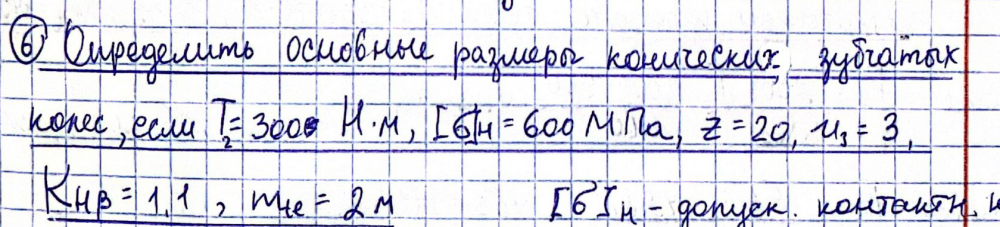 ⑥ Определить основные размеры конических зубчатых
колес, если T₂=300 Н·м, [σ]н=600 МПа, z=20, u₃=3,
Kнβ=1,1, mте=2м [σ]н - допуск. контактн.